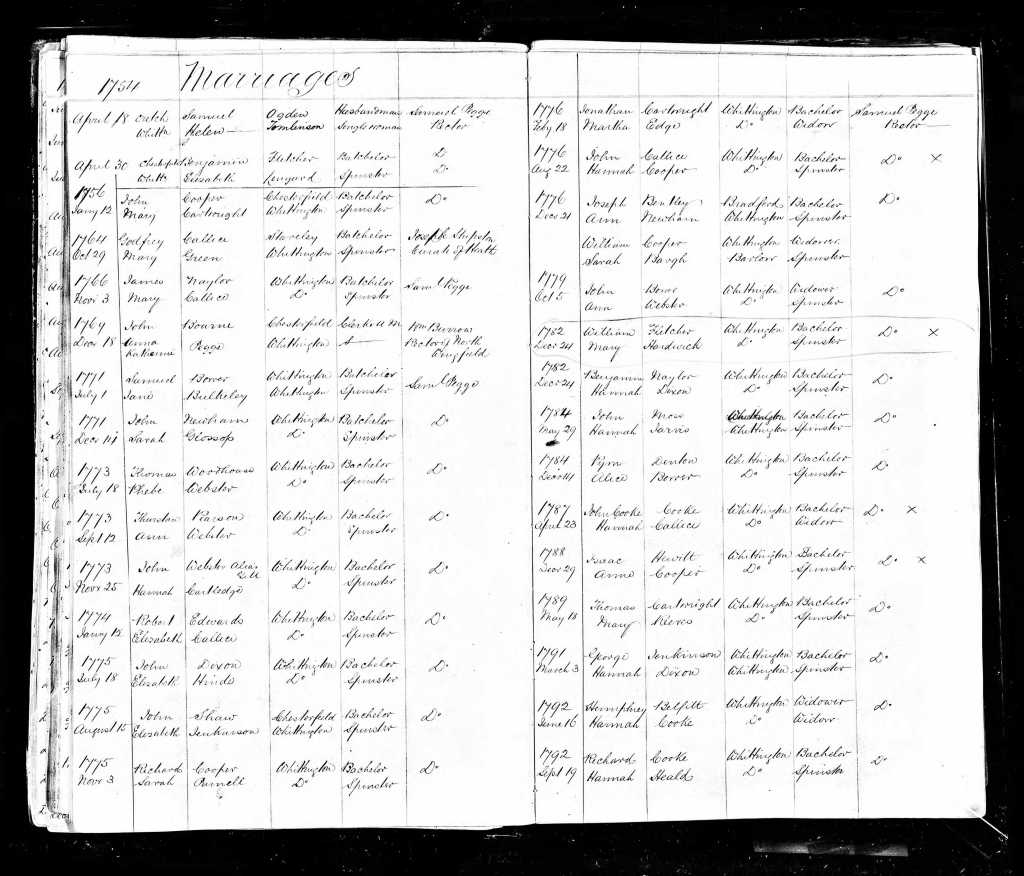 1754 Marriages
April 18 Cutch Samuel Ogden Husbandman Samuel Pegge
Whittn Helen Tomlinson Singlewoman Rector
April 30 Chesterfield Benjamin Fletcher Batchelor Do
Whittn Elisabeth Lingard Spinster Do
1756 John Cooper Chesterfield Batchelor Do
Jany 12 Mary Cartwright Whittington Spinster
1764 Godfrey Callice Staveley Batchelor Joseph
Oct 29 Mary Green Whittington Spinster Curate of Heath
1766 James Naylor Whittington Batchelor Saml Pegge
Novr 3 Mary Callice Do Spinster
1769 John Bourne Chesterfield Clerk & M Wm Burrow
Decr 18 Anna Pegge Whittington Rector of North
Katherine Wingfield
1771 Samuel Bower Whittington Batchelor Saml Pegge
July 1 Jane Bulkeley Whittington Spinster
1771 John Newham Whittington Batchelor Do
Decr Sarah Glossop Do Spinster
1773 Thomas Woodhouse Whittington Bachelor Do
July 18 Phebe Webster Do Spinster
1773 Thurstan Pearson Whittington Bachelor Do
Sept 12 Ann Webster Do Spinster
1773 John Webster Alias Whittington Bachelor Do
Novr 25 Hannah Cartledge Do Spinster
1774 Robert Edwards Whittington Bachelor Do
Jany 12 Elizabeth Callice Do Spinster
1775 John Dixon Whittington Bachelor Do
July 18 Elizabeth Hinde Do Spinster
1775 John Shaw Chesterfield Bachelor Do
August 15 Elizabeth Jenkinson Whittington Spinster
1775 Richard Cooper Whittington Bachelor Do
Novr 3 Sarah Purnell Do Spinster
1776 Jonathan Cartwright Whittington Bachelor Samuel Pegge
Feby 18 Martha Edge Do Widow Rector
1776 John Callice Whittington Bachelor Do ×
Aug 22 Hannah Cooper Do Spinster
1776 Joseph Bentley Bradford Bachelor Do
Decr 21 Ann Newham Whittington Spinster
William Cooper Whittington Widower
Sarah Bargh Barlow Spinster
1779 John Bower Whittington Widower Do
Oct 5 Ann Webster Do Spinster
1782 William Fletcher Whittington Bachelor Do ×
Decr 24 Mary Hardwick Do Spinster
1782 Benjamin Naylor Whittington Bachelor Do
Decr 24 Hannah Dixon Do Spinster
1784 John Mow Whittington Bachelor Do
May 29 Hannah Jarvis Whittington Spinster
1784 Pym Denton Whittington Bachelor Do
Decr 14 Alice Bower Do Spinster
1787 John Cooke Cooke Whittington Bachelor Do ×
Sept 23 Hannah Callice Do Widow
1788 Isaac Hewitt Whittington Bachelor Do ×
Decr 29 Anne Cooper Do Spinster
1789 Thomas Cartwright Whittington Bachelor Do
May 18 Mary Do Spinster
1791 George Jenkinson Whittington Bachelor Do
March 3 Hannah Dixon Whittington Spinster
1792 Humphrey Belfitt Whittington Widower Do
June 16 Hannah Cooke Do Widow
1792 Richard Cooke Whittington Bachelor Do
Sept 19 Hannah Heald Do Spinster